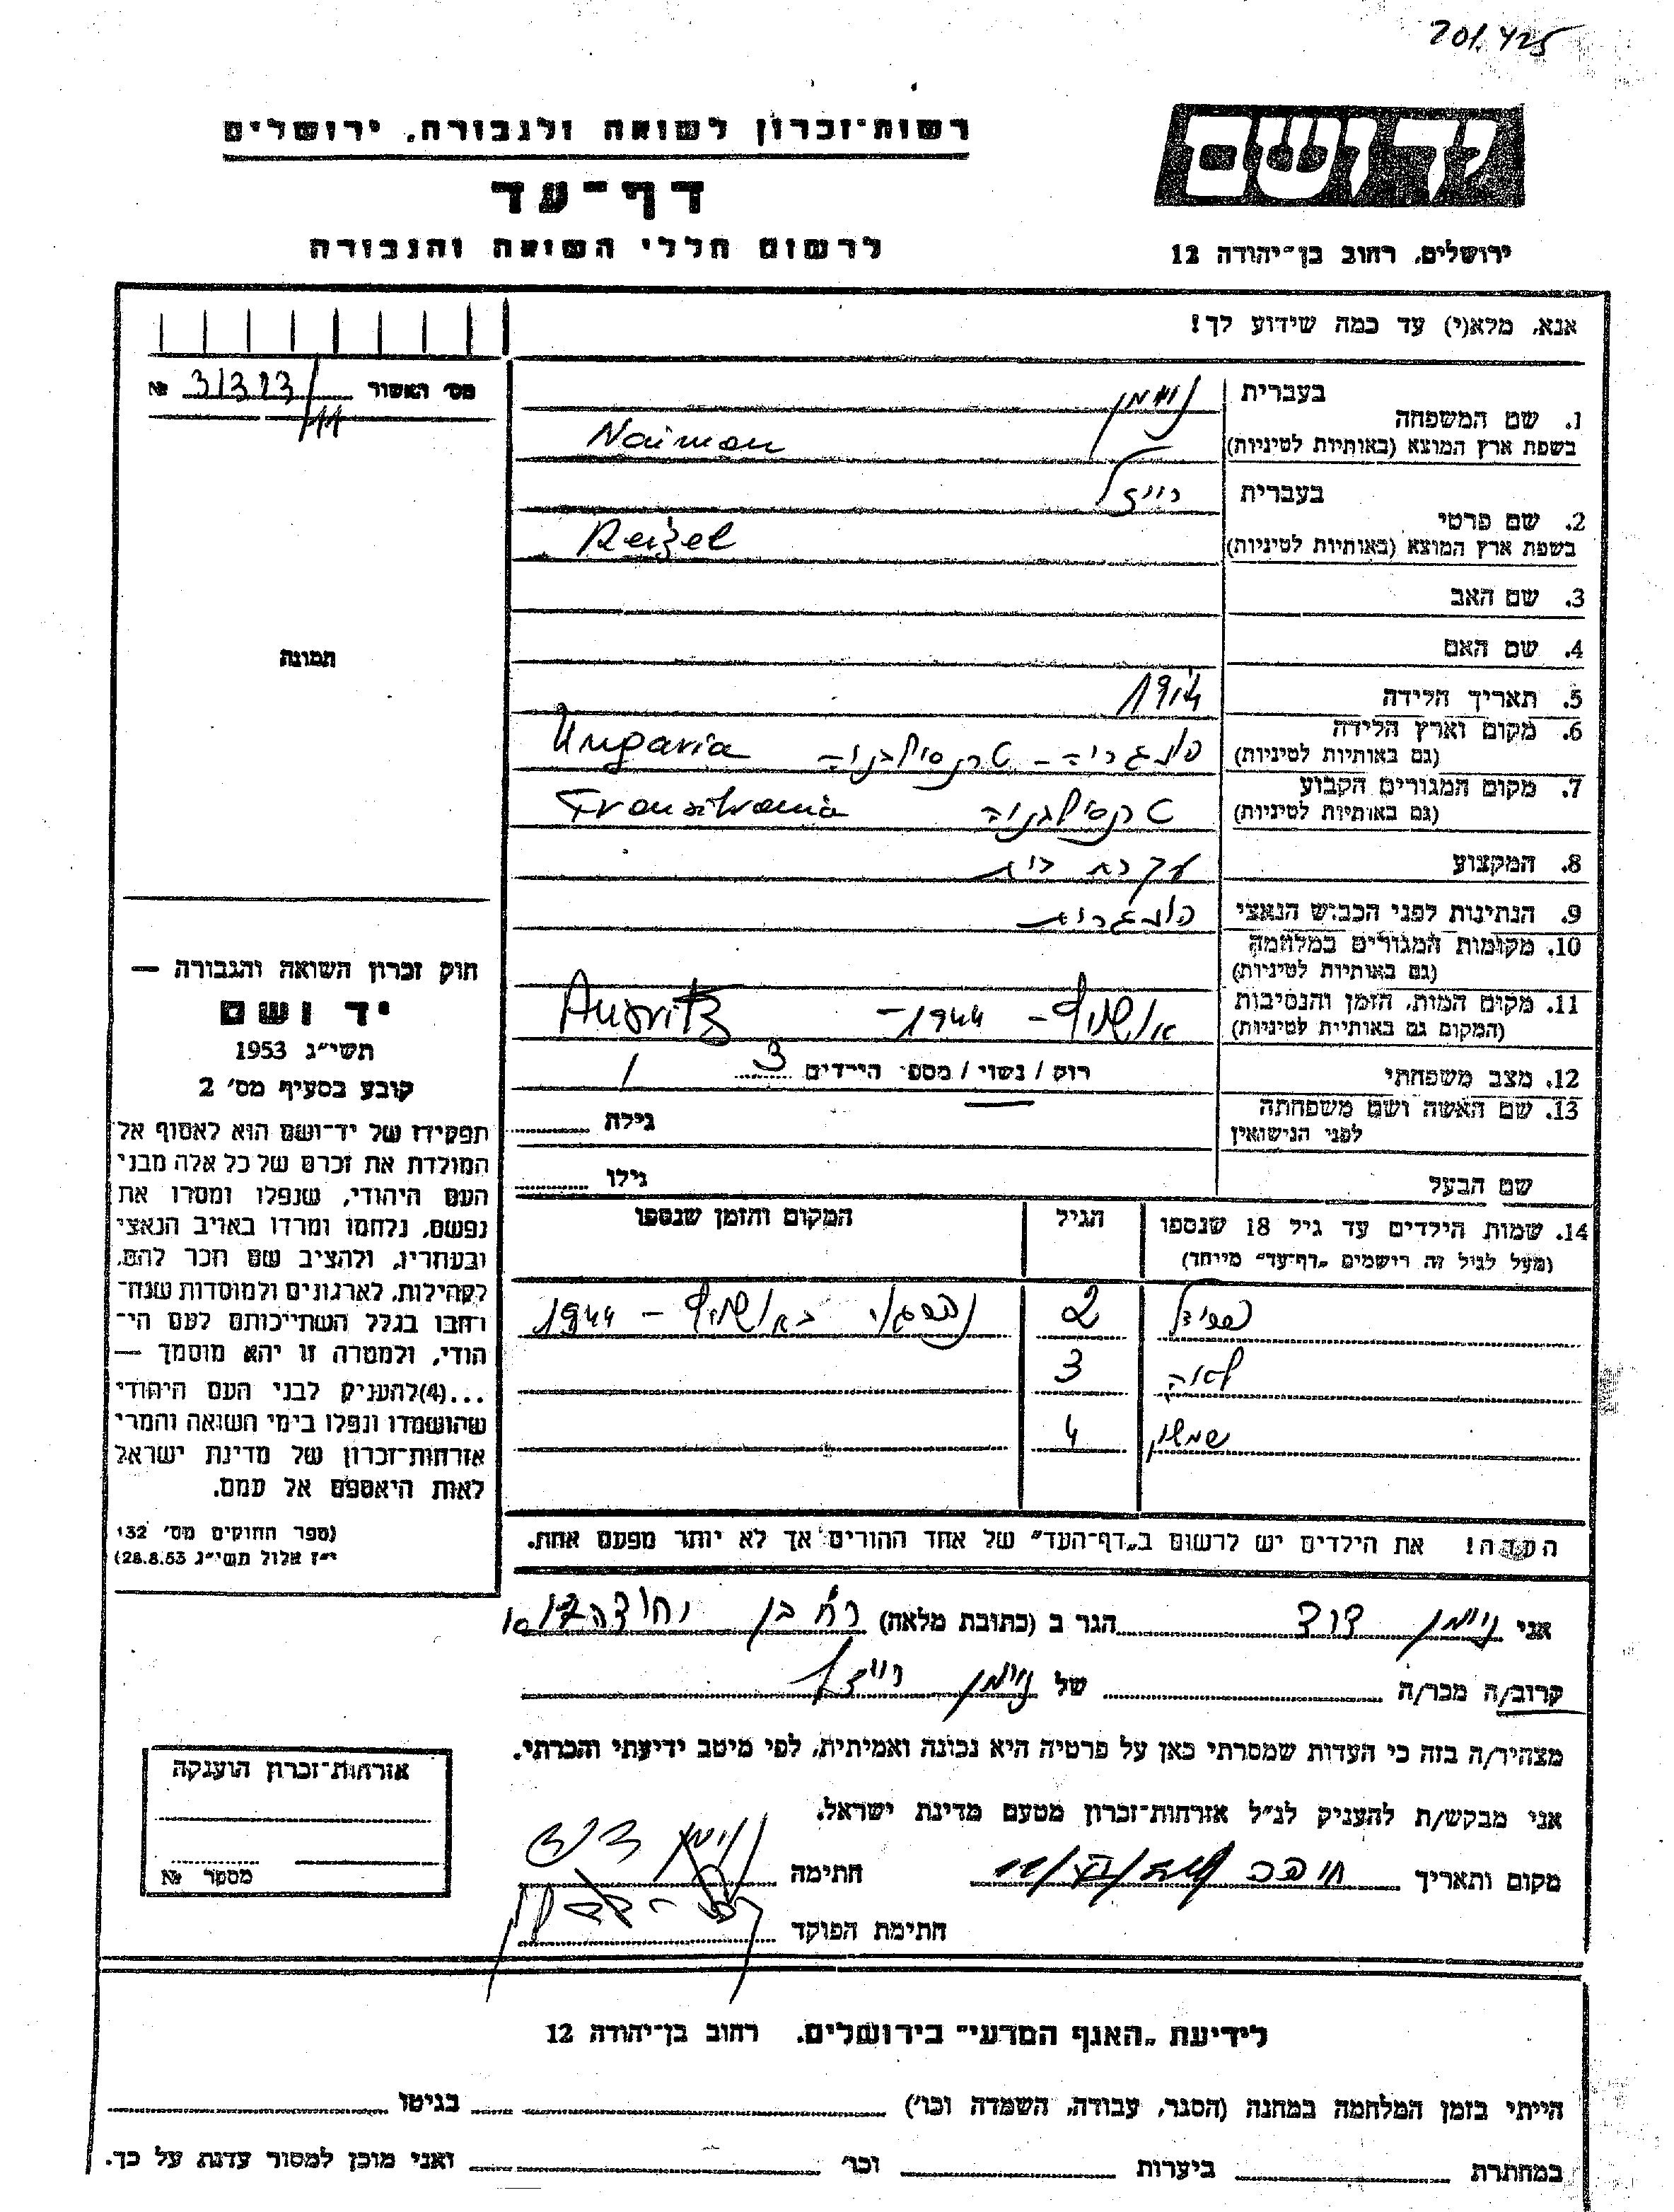 201.425
רשות־זכרון לשואה ולגבורה, ירושלים
יד ושם
דף־עד
לרשום חללי השואה והגבורה
ירושלים, רחוב בן־יהודה 12
אנא, מלא(י) עד כמה שידוע לך!
מס' האשור № 31323/11
1. שם המשפחה בעברית ניימן
בשפת ארץ המוצא (באותיות לטיניות) Naiman
2. שם פרטי בעברית רייזל
בשפת ארץ המוצא (באותיות לטיניות) Reizel
3. שם האב
4. שם האם
תמונה
5. תאריך הלידה
6. מקום וארץ הלידה הונגריה – טרנסילבניה Ungaria
(גם באותיות לטיניות)
7. מקום המגורים הקבוע טרנסילבניה Transilvania
(גם באותיות לטיניות)
8. המקצוע עקרת בית
9. הנתינות לפני הכבוש הנאצי הונגרית
10. מקומות המגורים במלחמה
(גם באותיות לטיניות)
11. מקום המות, הזמן והנסיבות אושויץ – 1944 – Ausvitz
(המקום גם באותיות לטיניות)
12. מצב משפחתי רווק / נשוי / מספר הילדים 3
13. שם האשה ושם משפחתה גילה
לפני הנישואין
שם הבעל גילו
חוק זכרון השואה והגבורה —
יד ושם
תשי״ג 1953
קובע בסעיף מס' 2
תפקידו של יד־ושם הוא לאסוף אל
המולדת את זכרם של כל אלה מבני
העם היהודי, שנפלו ומסרו את
נפשם, נלחמו ומרדו באויב הנאצי
ובעוזריו, ולהציב שם וזכר להם,
לקהילות, לארגונים ולמוסדות שנח־
רבו בגלל השתייכותם לעם הי־
הודי, ולמטרה זו יהא מוסמך —
...(4)להעניק לבני העם היהודי
שהושמדו ונפלו בימי השואה והמרי
אזרחות־זכרון של מדינת ישראל
לאות היאספם אל עמם.
(ספר החוקים מס' 132
י״ז אלול תשי״ג 28.8.53)
14. שמות הילדים עד גיל 18 שנספו הגיל המקום והזמן שנספו
(מעל לגיל זה רישמים „דף־עד״ מייוחד)
2 באושויץ – 1944
לאה 3
שמשון 4
הערה! את הילדים יש לרשום ב„דף־העד״ של אחד ההורים אך לא יותר מפעם אחת.
אני ניימן דוד הגר ב (כתובת מלאה) רח' בן יהודה
קרוב/ה מכר/ה של ניימן רייזל
מצהיר/ה בזה כי העדות שמסרתי כאן על פרטיה היא נכונה ואמיתית, לפי מיטב ידיעתי והכרתי.
אני מבקש/ת להעניק לנ״ל אזרחות־זכרון מטעם מדינת ישראל.
מקום ותאריך חתימה ניימן דוד
חתימת הפוקד
אזרחות־זכרון הוענקה
מספר №
לידיעת „האגף המדעי״ בירושלים. רחוב בן־יהודה 12
הייתי בזמן המלחמה במחנה (הסגר, עבודה, השמדה וכו') בגיטו
במחתרת ביערות וכו' ואני מוכן למסור עדות על כך.